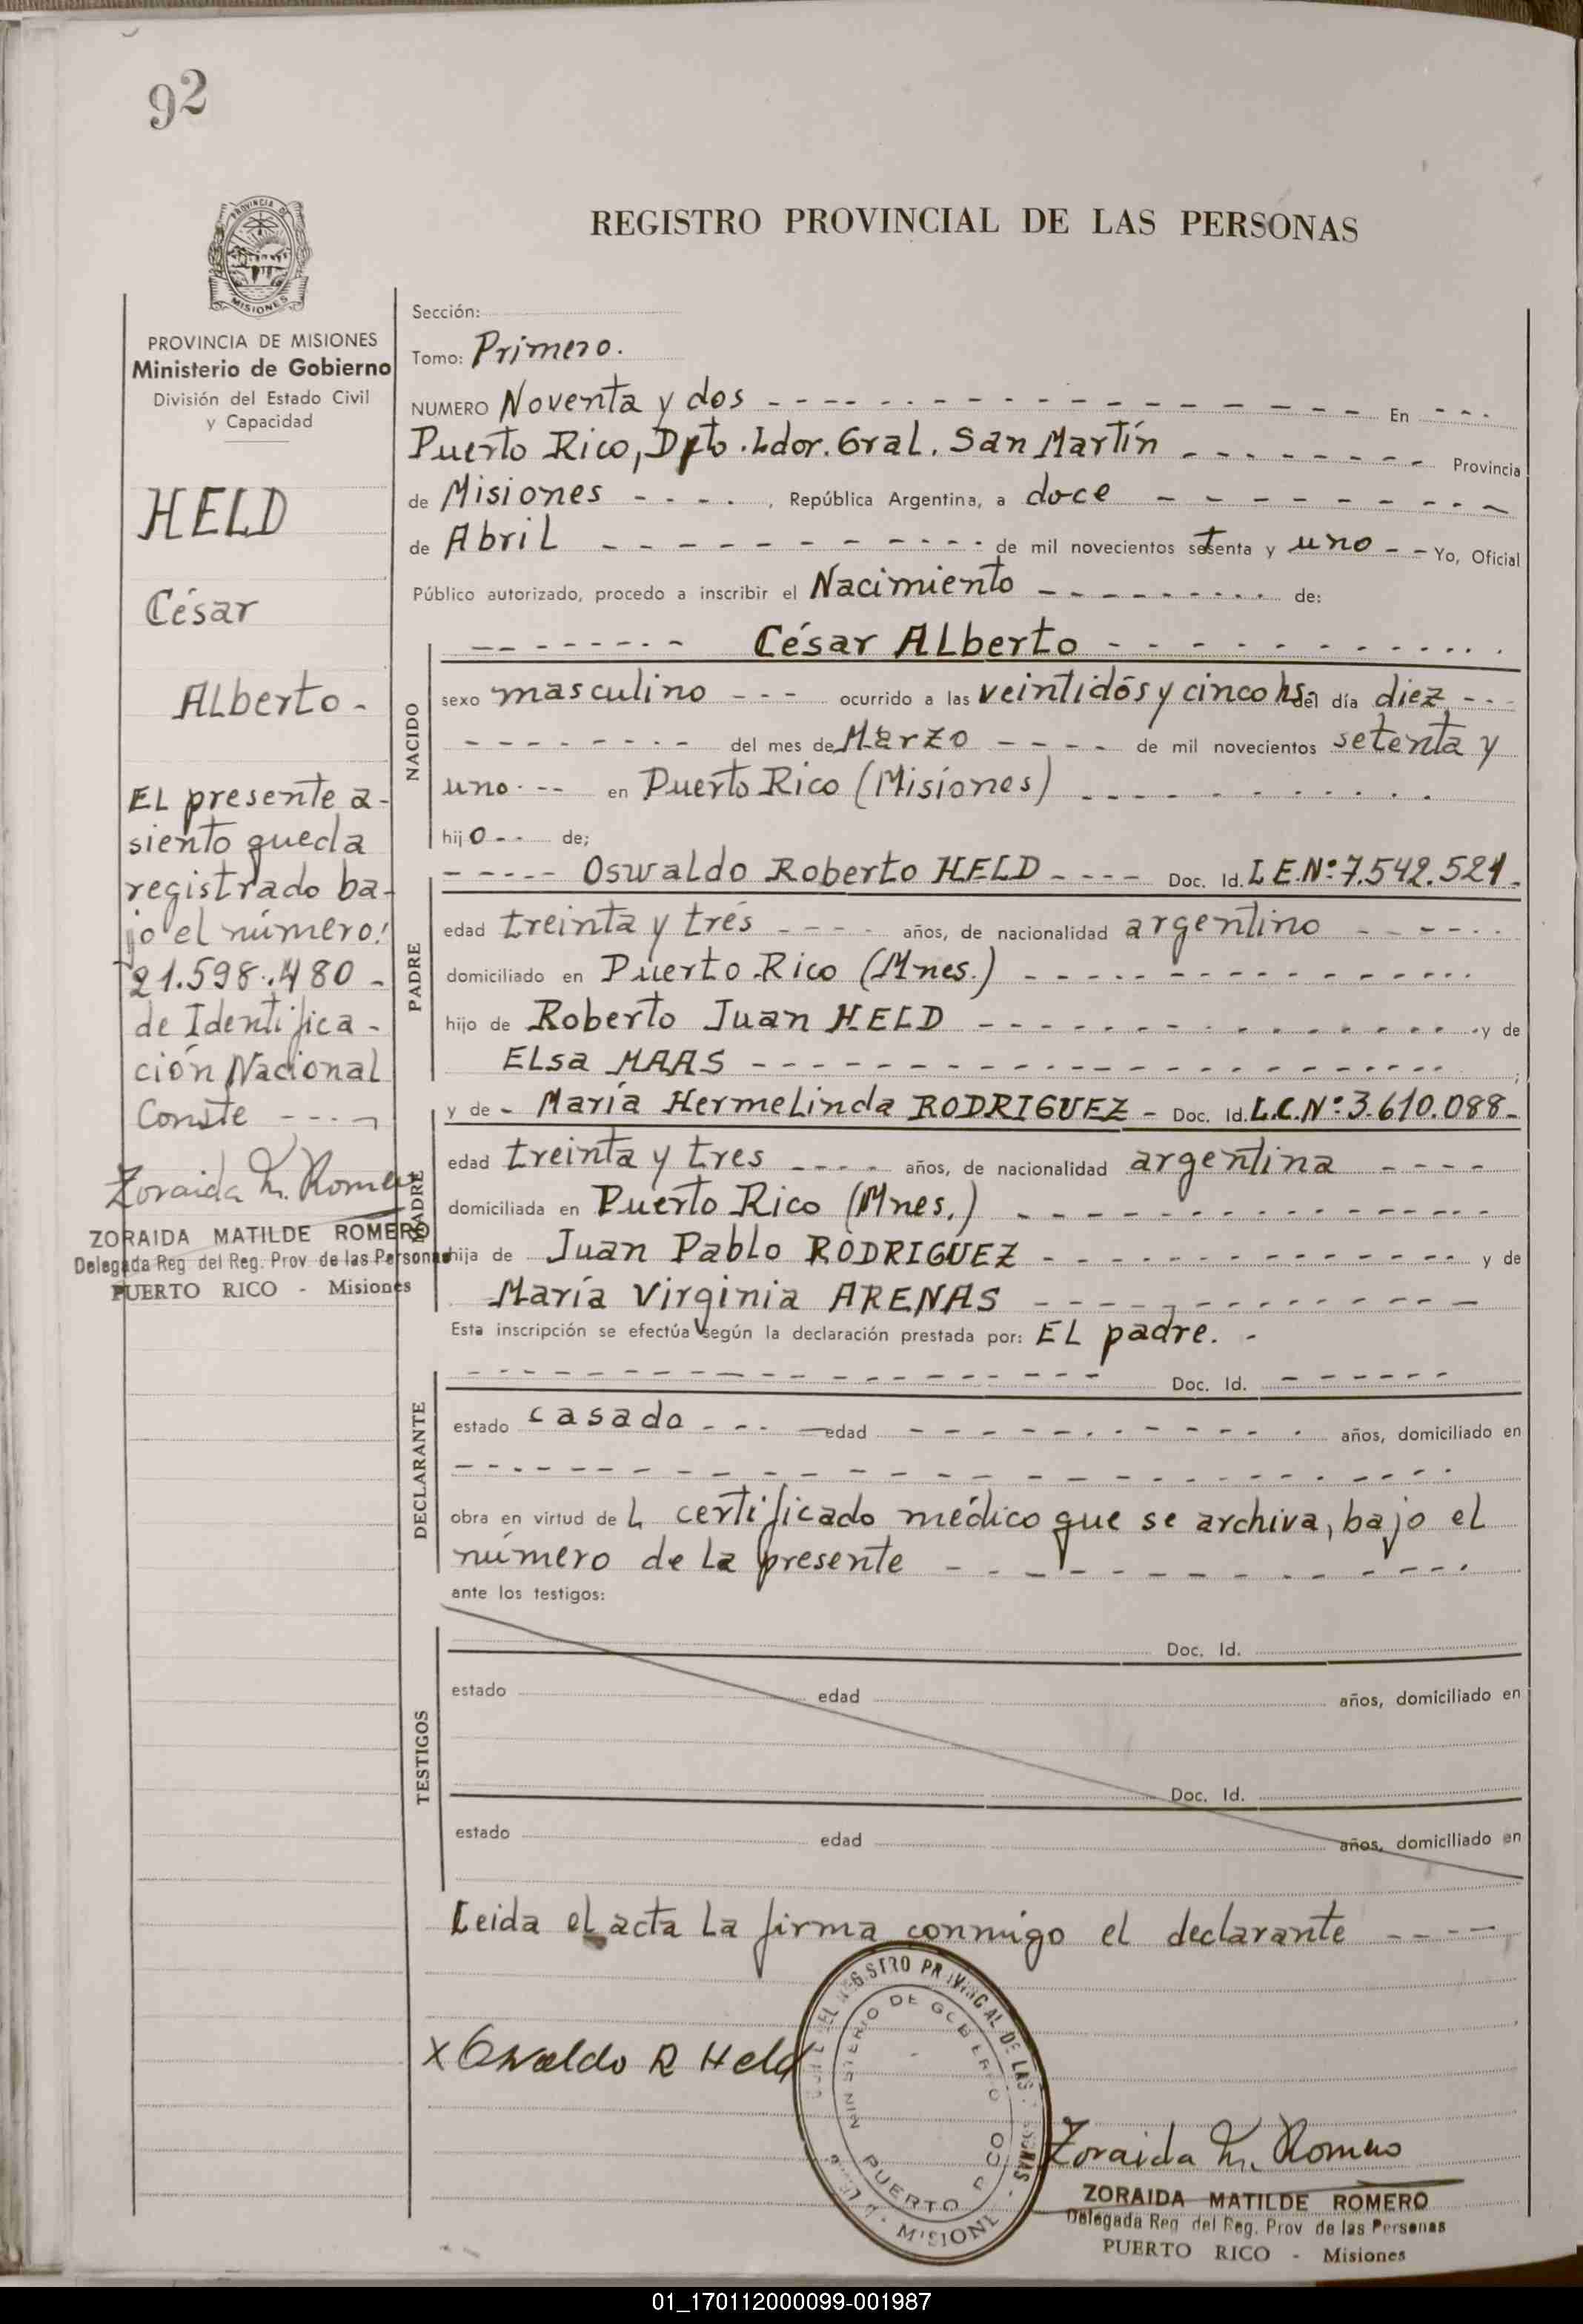 92
REGISTRO PROVINCIAL DE LAS PERSONAS
PROVINCIA DE MISIONES
MISIONES
PROVINCIA DE MISIONES
Ministerio de Gobierno
División del Estado Civil
y Capacidad
HELD
César
Alberto -
El presente a-
siento queda
registrado ba-
jo el número:
21.598.480 -
de Identifica-
ción Nacional
Conste - - - -
Zoraida M. Romero
ZORAIDA MATILDE ROMERO
Delegada Reg. del Reg. Prov. de las Personas
PUERTO RICO - Misiones
Sección:
Tomo: Primero.
NUMERO Noventa y dos - - - - En - - -
Puerto Rico, Dpto. Ldor. Gral. San Martín - - - - Provincia
de Misiones - - - - , República Argentina, a doce - - - -
de Abril - - - - de mil novecientos setenta y uno - - Yo, Oficial
Público autorizado, procedo a inscribir el Nacimiento - - - - de:
NACIDO
- - - - César Alberto - - - -
sexo masculino - - - ocurrido a las veintidós y cinco hs del día diez - - -
- - - - del mes de Marzo - - - - de mil novecientos setenta y
uno - - - en Puerto Rico (Misiones) - - - -
hijo - - de;
PADRE
- - - - Oswaldo Roberto HELD - - - - Doc. Id. L.E.Nº: 7.542.521.
edad treinta y tres - - - - años, de nacionalidad argentino - - - -
domiciliado en Puerto Rico (Mnes.) - - - -
hijo de Roberto Juan HELD - - - - y de
Elsa MAAS - - - - ;
MADRE
y de - María Hermelinda RODRIGUEZ - Doc. Id. L.C.Nº: 3.610.088-
edad treinta y tres - - - - años, de nacionalidad argentina - - - -
domiciliada en Puerto Rico (Mnes.) - - - -
hija de Juan Pablo RODRIGUEZ - - - - y de
María Virginia ARENAS - - - -
Esta inscripción se efectúa según la declaración prestada por: El padre. -
DECLARANTE
- - - - Doc. Id. - - - -
estado casado - - - edad - - - - años, domiciliado en
- - - -
obra en virtud del certificado médico que se archiva, bajo el
número de la presente - - - -
ante los testigos:
TESTIGOS
Doc. Id.
estado edad años, domiciliado en
Doc. Id.
estado edad años, domiciliado en
Leida el acta la firma conmigo el declarante - - - -
x Oswaldo R Held
REGISTRO PROVINCIAL DE LAS
MINISTERIO DE GOBIERNO
PUERTO RICO
MISIONES
Zoraida M. Romero
ZORAIDA MATILDE ROMERO
Delegada Reg. del Reg. Prov. de las Personas
PUERTO RICO - Misiones
01_170112000099-001987